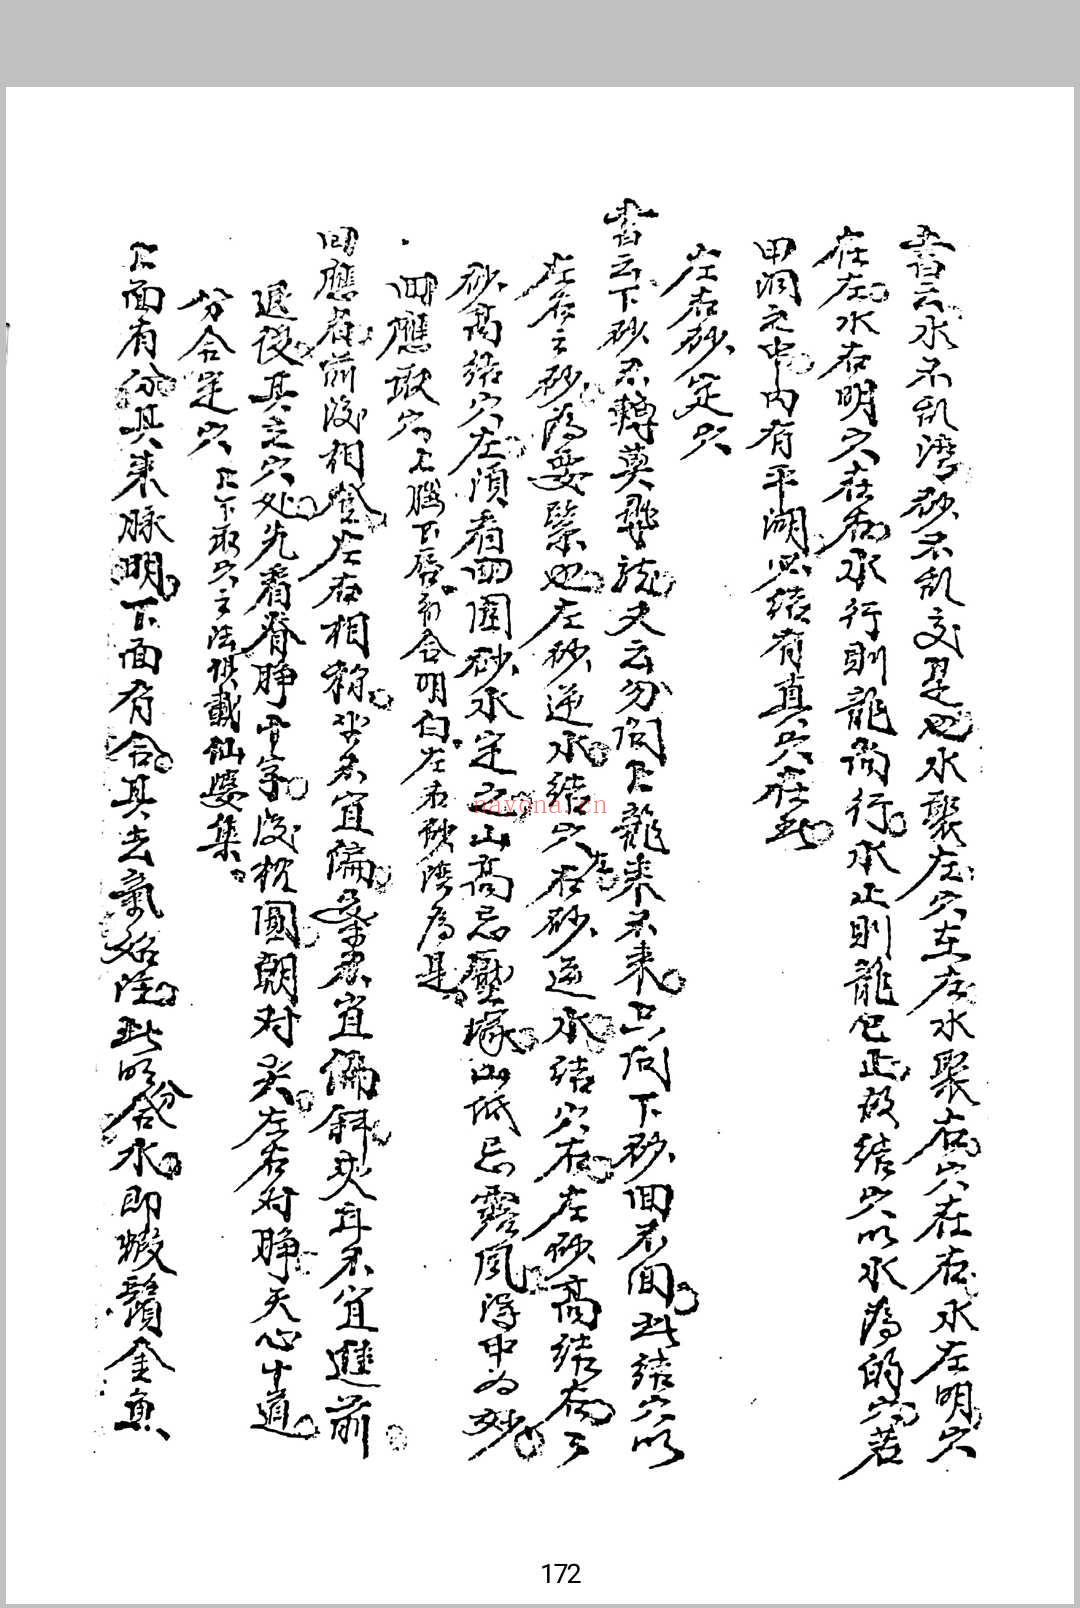 書云水不乱湾砂不乱交是也水聚左穴在左水聚右穴在右水左明穴
在左水右明穴在右水行則龍尚行水止則龍已止故結穴以水為的穴若
田洞之中内有平湖必結有真穴在此
左右砂定穴
書云下砂不轉莫尋龍又云勿问上龍来不来只问下砂回不回此結穴以
左右之砂為要緊也左砂逆水結穴左右砂逆水結穴右左砂高結左右
砂高結穴左須看四围砂水定之山高忌壓塚山低忌露風得中為妙
回應取穴上腦下唇分合明白左右砂湾為是
回應者前後相登左右相称坐不宜偏案不宜偏斜夹耳不宜進前
退後其定穴处先看脊睁十字後枕圓朝对尖左右对睁天心十道
分合定穴 上下取穴之法俱載仙婆集
上面有分其来脉明下面有合其去氣始住此以分合水即蝦鬚金魚
172
navona.cn